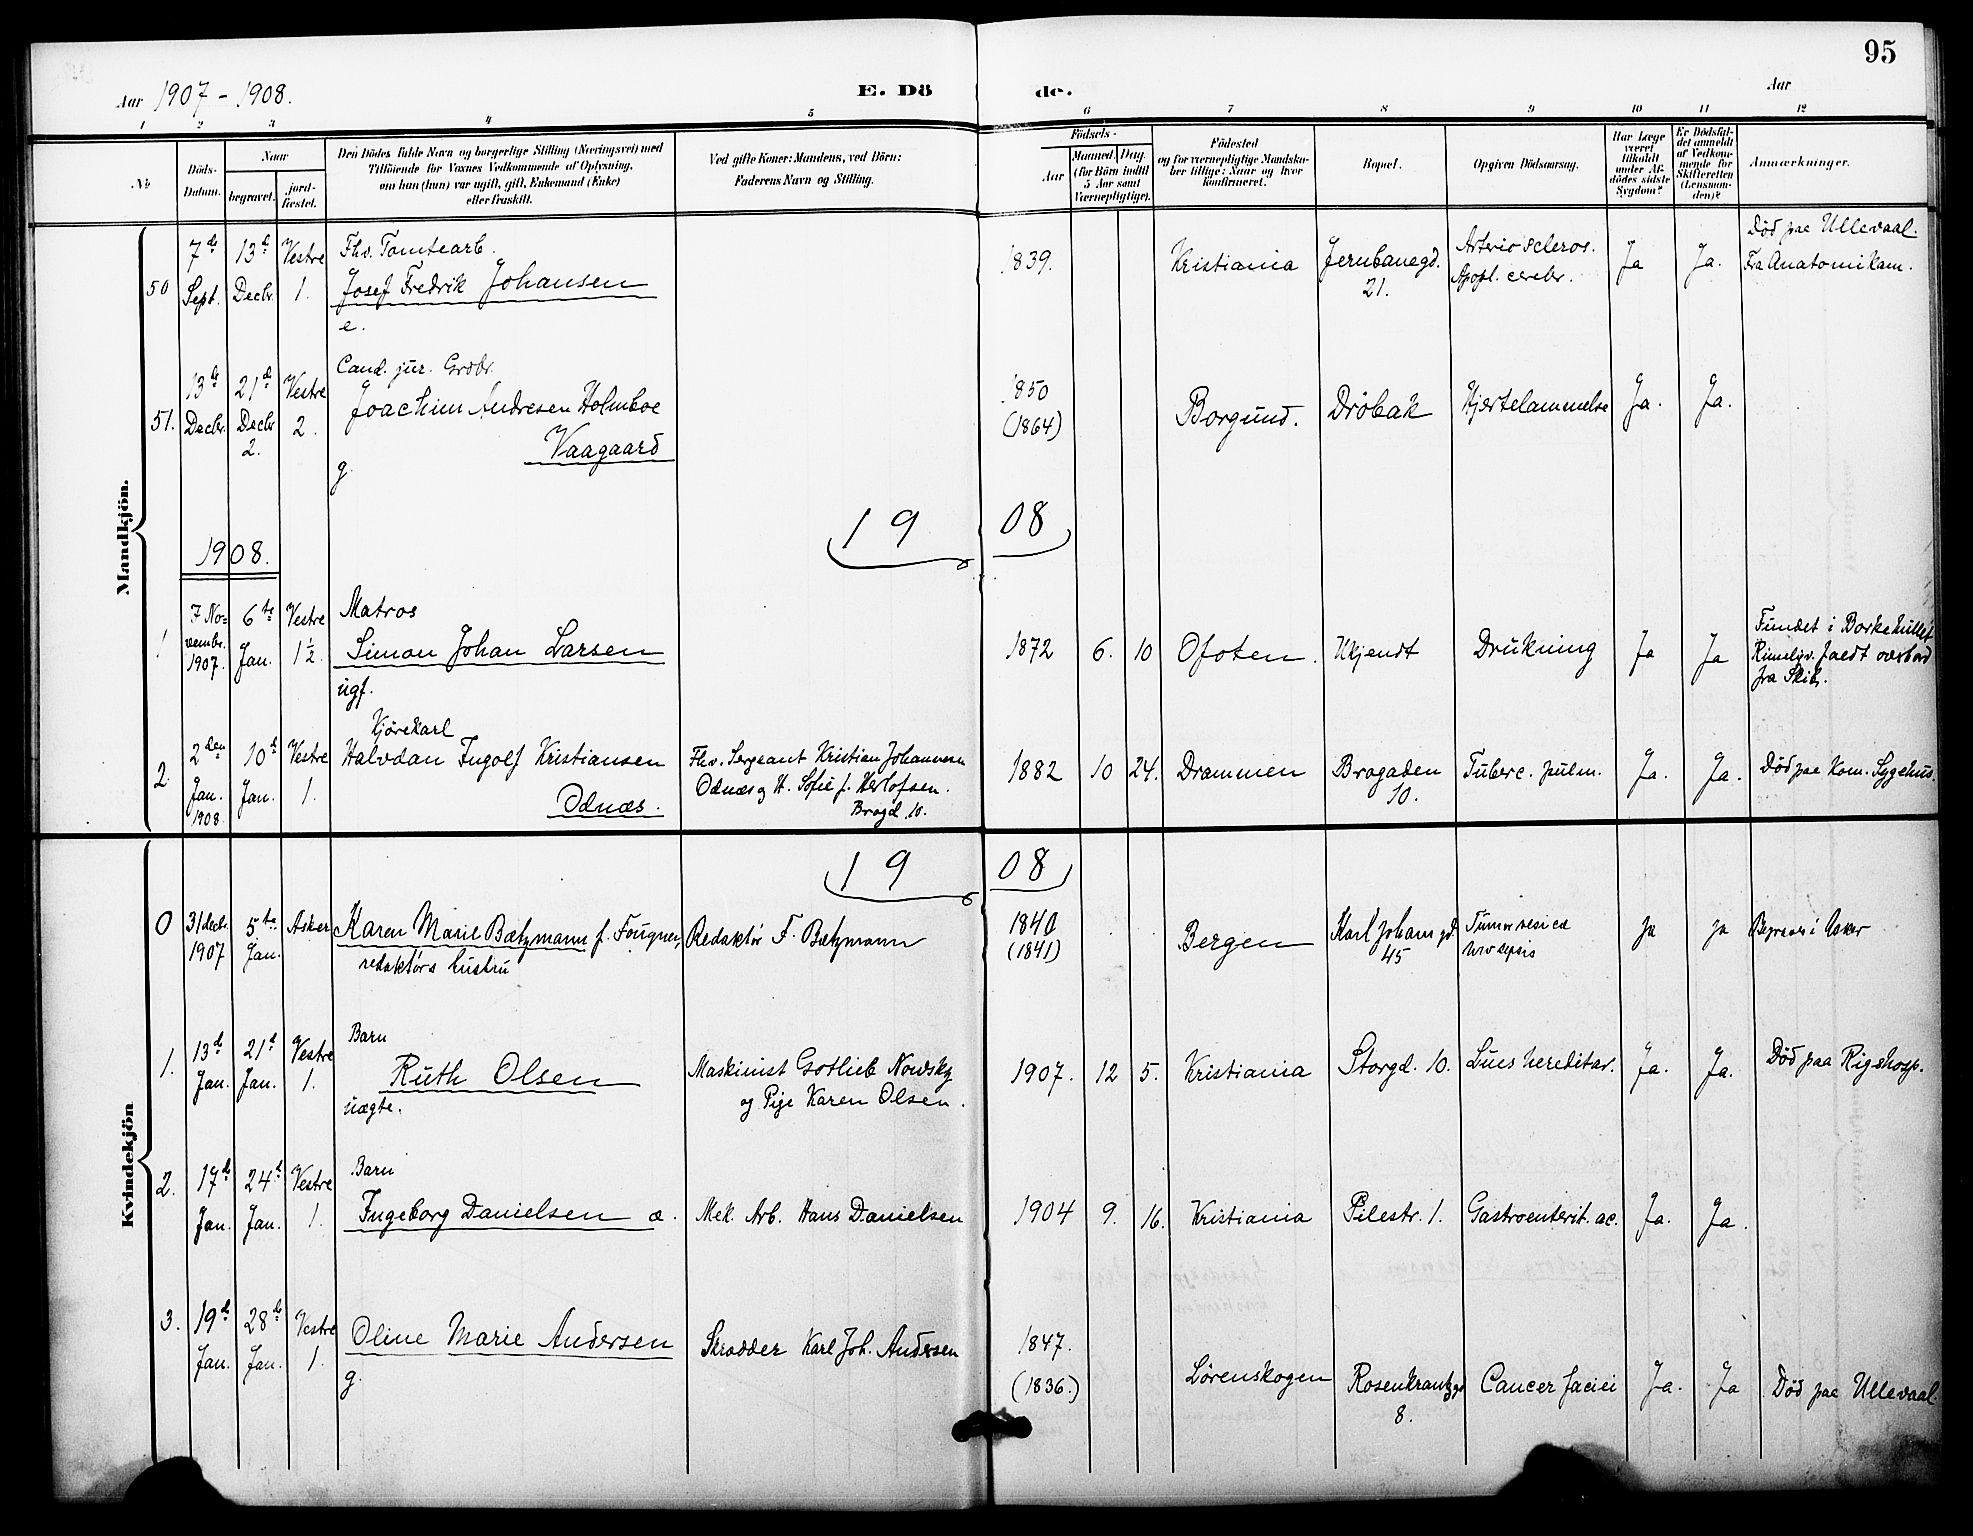 95
Aar 1907 - 1908.
E. Dö
de.
Aar
1 2 3 4 5 6 7 8 9 10 11 12
No
Döds-
Datum.
Naar
begravet.
jord-
fæstet.
Den Dödes fulde Navn og borgerlige Stilling (Næringsvei) med
Tilföiende for Voxnes Vedkommende af Oplysning,
om han (hun) var ugift, gift, Enkemand (Enke)
eller fraskilt.
Ved gifte Koner: Mandens, ved Börn:
Faderens Navn og Stilling.
Födsels-
Aar
Maaned. Dag.
(for Börn indtil
5 Aar samt
Værnepligtige).
Födested
og for værnepligtige Mandska-
ber tillige: Naar og hvor
konfirmeret.
Bopæl.
Opgiven Dödsaarsag.
Har Læge
været
tilkaldt
under Af-
dödes sidste
Sygdom?
Er Dödsfal-
det anmeldt
af Vedkom-
mende for
Skifteretten
(Lensman-
den)?
Anmærkninger.
Mandkjön.
50
7de
Sept.
13de
Decbr.
Vestre
1.
Fhv. Tomtearb.
Josef Fredrik Johansen
e.
1839.
Kristiania
Jernbanegd.
21.
Arterioscleros.
Apopl. cerebr.
Ja
Ja.
Död paa Ullevaal.
Fra Anatomikam.
51.
13de
Decbr.
21de
Decbr
2.
Vestre
2.
Cand. jur. Grobr.
Joachim Andresen Holmboe
Vaagaard
g.
1850
(1864)
Borgund.
Dröbak
Hjertelammelse
Ja.
Ja.
1908.
1908
1
7 No-
vembr.
1907.
6te
Jan.
Vestre
1½
Matros
Simon Johan Larsen
ugf.
1872
6.
10
Ofoten.
Ukjendt
Drukning
Ja
Ja
Fundet i Borkehullet
Rimeligv. faldt overbord
fra Skib.
2
2den
Jan.
1908
10de
Jan.
Vestre
1.
Kjörekarl
Halvdan Ingolf Kristiansen
Odnæs.
Fhv. Sergeant Kristian Johannesen
Odnæs og H. Sofie f. Herlofsen.
Brogd. 10.
1882
10
24.
Drammen
Brogaden
10.
Tuberc. pulm.
Ja.
Ja.
Död paa Kom. Sygehus.
Kvindekjön
1908
0
31 decbr.
1907
5te
Jan.
Asker
Karen Marie Bætzmann f. Fougner,
redaktörs hustru
Redaktör F. Bætzmann
1840
(1841)
Bergen
Karl Johans gd.
45
Tumor vesicæ
urosepsis
ja
ja
Begravet i Asker
1.
13de
Jan.
21de
Jan.
Vestre
1.
Barn
Ruth Olsen
uægte.
Maskinist Gotlieb Nowsky
og Pige Karen Olsen.
1907.
12
5.
Kristiania
Storgd. 10.
Lues hereditar.
Ja.
Ja.
Död paa Rigshosp.
2.
17de
Jan.
24de
Jan.
Vestre
1.
Barn
Ingeborg Danielsen æ.
Mek. Arb. Hans Danielsen
1904
9.
16.
Kristiania
Pilestr. 1.
Gastroenterit. ac.
Ja.
Ja.
3.
19de
Jan.
28de
Jan.
Vestre
1.
Oline Marie Andersen
g.
Skrædder Karl Joh. Andersen
1847.
(1836.)
Lörenskogen
Rosenkrantzgd
8.
Cancer faciei
Ja.
Ja
Död paa Ullevaal.